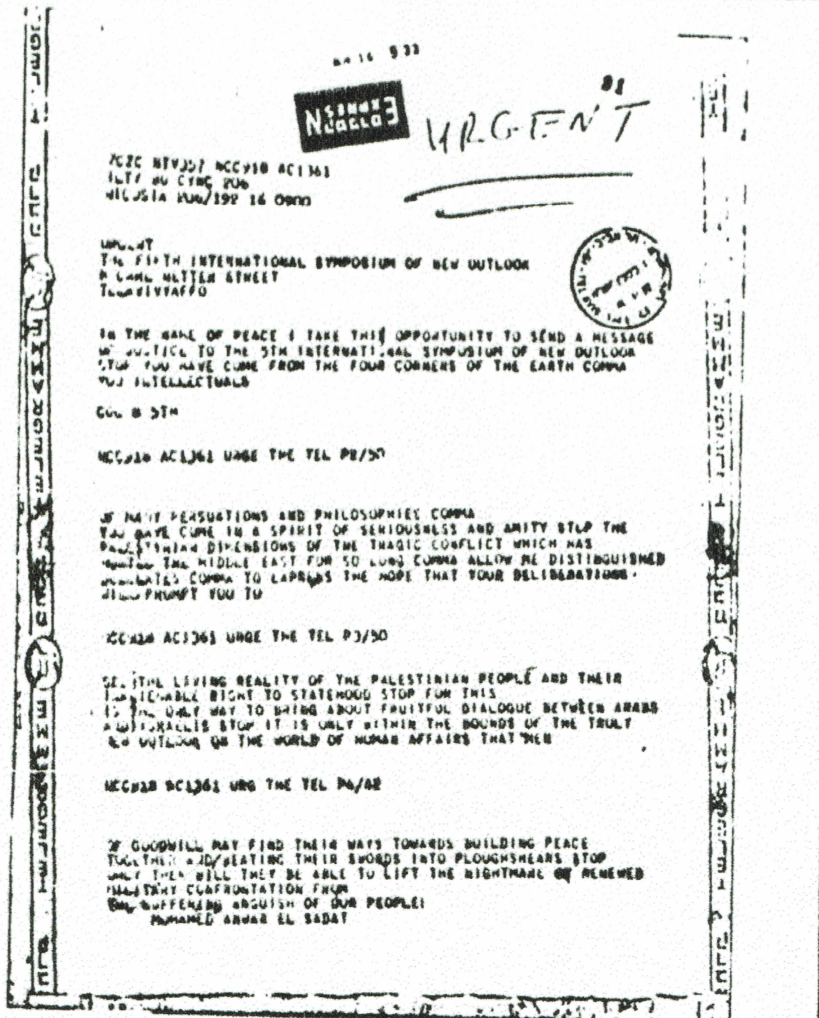 URGENT
NICOSIA 206/192 16 0900
URGENT
THE FIFTH INTERNATIONAL SYMPOSIUM OF NEW OUTLOOK
8 CARL NETTER STREET
TELAVIVYAFFO
IN THE NAME OF PEACE I TAKE THIS OPPORTUNITY TO SEND A MESSAGE
OF JUSTICE TO THE 5TH INTERNATIONAL SYMPOSIUM OF NEW OUTLOOK
STOP YOU HAVE COME FROM THE FOUR CORNERS OF THE EARTH COMMA
YOU INTELLECTUALS
COL 8 5TH
AC1361 URGE THE TEL P2/50
OF MANY PERSUATIONS AND PHILOSOPHIES COMMA
YOU HAVE COME IN A SPIRIT OF SERIOUSNESS AND AMITY STOP THE
PALESTINIAN DIMENSIONS OF THE TRAGIC CONFLICT WHICH HAS
THE MIDDLE EAST FOR SO LONG COMMA ALLOW ME DISTINGUISHED
DELEGATES COMMA TO EXPRESS THE HOPE THAT YOUR DELIBERATIONS
WILL PROMPT YOU TO
AC1361 URGE THE TEL P3/50
SEE THE LIVING REALITY OF THE PALESTINIAN PEOPLE AND THEIR
INALIENABLE RIGHT TO STATEHOOD STOP FOR THIS
IS THE ONLY WAY TO BRING ABOUT FRUITFUL DIALOGUE BETWEEN ARABS
AND ISRAELIS STOP IT IS ONLY WITHIN THE BOUNDS OF THE TRULY
NEW OUTLOOK ON THE WORLD OF HUMAN AFFAIRS THAT MEN
AC1361 URG THE TEL P4/42
OF GOODWILL MAY FIND THEIR WAYS TOWARDS BUILDING PEACE
TOGETHER AND/BEATING THEIR SWORDS INTO PLOUGHSHEARS STOP
ONLY THEN WILL THEY BE ABLE TO LIFT THE NIGHTMARE OF RENEWED
MILITARY CONFRONTATION FROM
THE SUFFERING ANGUISH OF OUR PEOPLE!
MOHAMED ANWAR EL SADAT